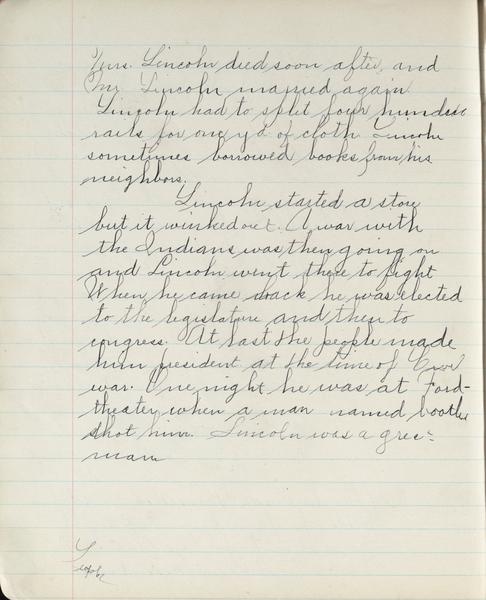 Mrs. Lincoln died soon after, and
Mr. Lincoln married again
Lincoln had to split four hundred
rails for one yd of cloth Lincoln
sometimes borrowed books from his
neighbors.
Lincoln started a store
but it winked out. A war with
the Indians was then going on
and Lincoln went there to fight
When he came back he was elected
to the legislature and then to
congress. At last the people made
him president at the time of Civil
war. One night he was at Ford-
theater when a man named booths
shot him. Lincoln was a grea-
man